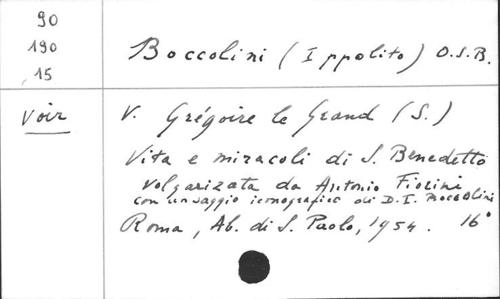 90
190
15
Boccolini (Ippolito) O.S.B.
Voir
V. Grégoire le Grand (S.)
Vita e miracoli di S. Benedetto
volgarizata da Antonio Fiorini
con un saggio iconografico di D. I. Boccolini
Roma, Ab. di S. Paolo, 1954. 16°